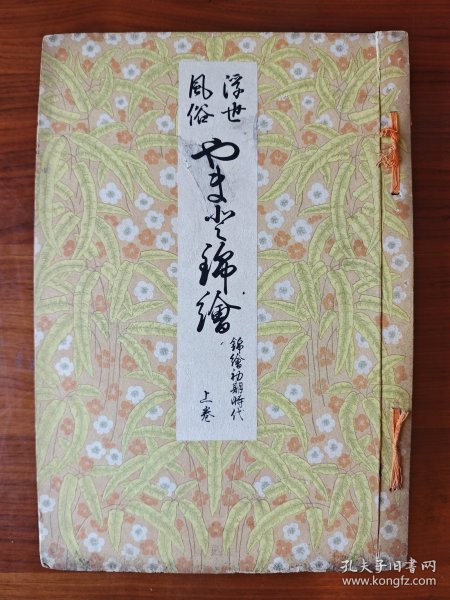 浮世
風俗
やまと錦繪
錦繪初期時代
上巻
孔夫子旧书网
www.kongfz.com